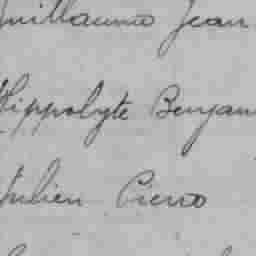 Guillaume Jean
Hippolyte Benjam
Julien Pierre